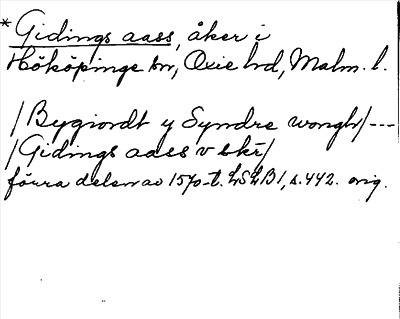 *Gidings aass, åker i
Hököpinge sn, Oxie hd, Malm. l.
/Bygiordt y Syndre wongh/---
/Gidings aass v skr/
förra delen av 1570-t. LSLB1, s. 442. orig.